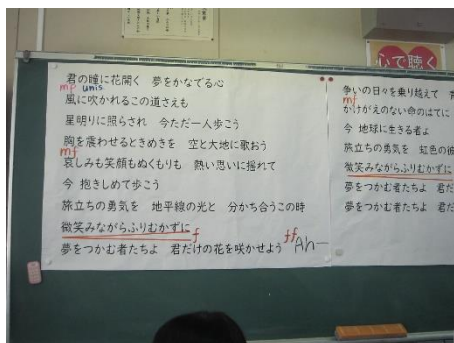 心で聴く
君の瞳に花開く 夢をかなでる心
mp unis.
風に吹かれるこの道さえも
星明りに照らされ 今ただ一人歩こう
胸を震わせるときめきを 空と大地に歌おう
mf
哀しみも笑顔もぬくもりも 熱い思いに揺れて
今 抱きしめて歩こう
旅立ちの勇気を 地平線の光と 分かち合うこの時
微笑みながらふりむかずに
f
夢をつかむ者たちよ 君だけの花を咲かせよう
ff Ah―
争いの日々を乗り越えて
mf
かけがえのない命のはてに
今 地球に生きる者よ
旅立ちの勇気を 虹色の彼
微笑みながらふりむかずに
夢をつかむ者たちよ 君だ
夢をつかむ者たちよ 君だ